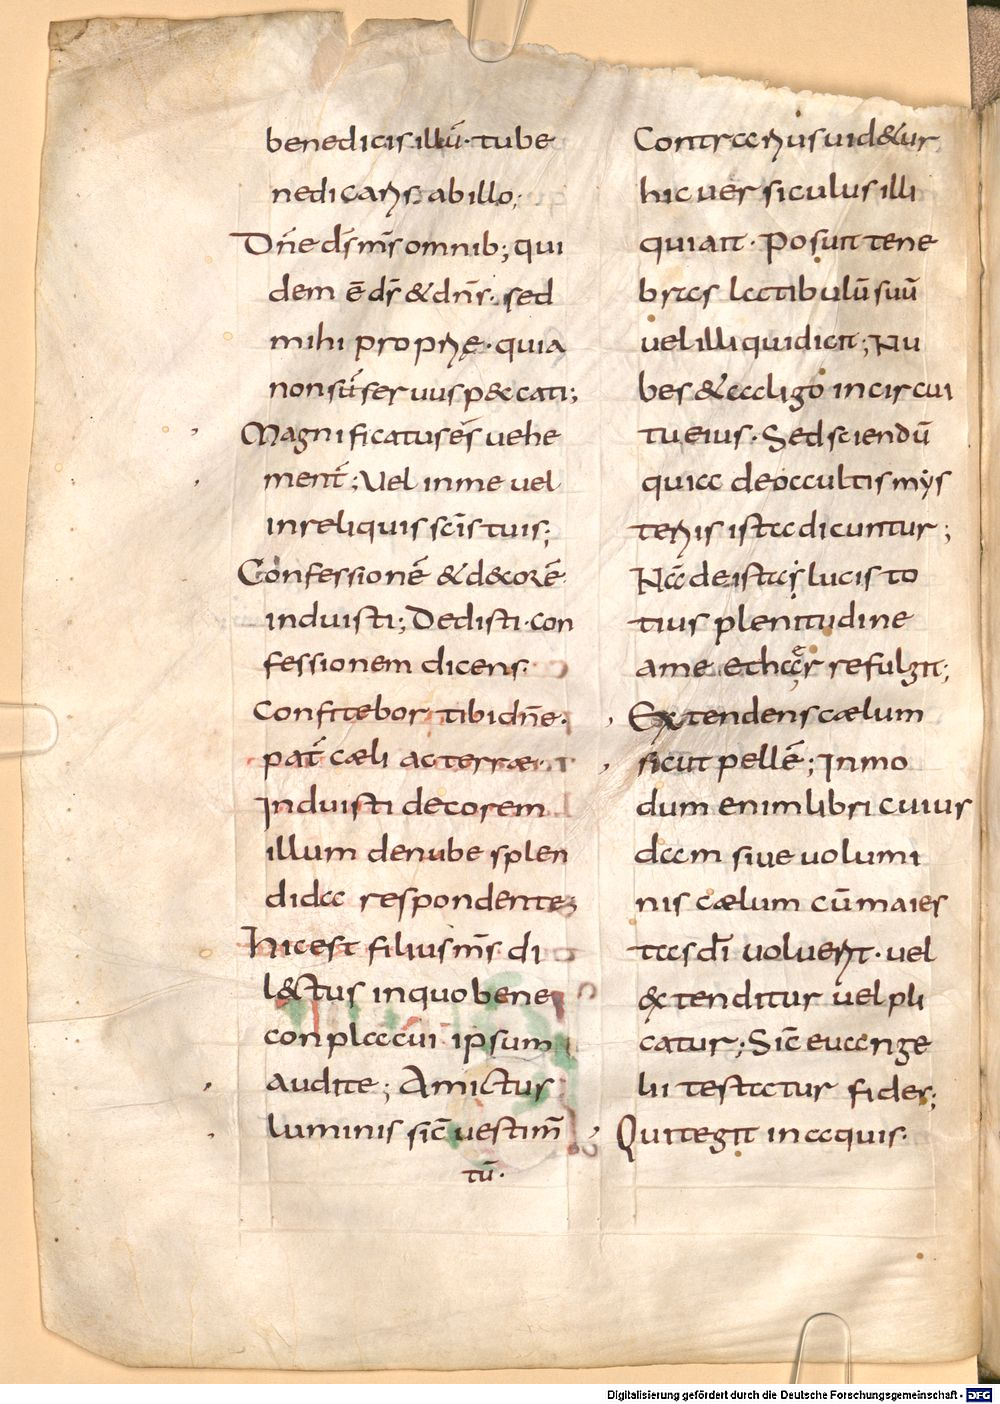 benedicis illū· tu be
nedicaris ab illo;
Dn̄e d͞s m͞s omnib; qui
dem ē d͞s & dn̄s· sed
mihi proprię· quia
non sū seruus peccati;
Magnificatus es uehe
ment̄; Uel in me uel
in reliquis sc̄is tuis;
Confessionē & decorē
induisti; Dedisti· con
fessionem dicens·
Confitebor tibi dn̄e·
pat̄ cæli ac terræ·
Induisti decorem
illum de nube splen
dida respondente;
Hic est filius m͞s di
lectus in quo bene
conplacui ipsum
audite; Amictus
luminis sic̄ uestim̄
tū·
Contrarius uidetur
hic uersiculus illi
qui ait· Posuit tene
bras latibulū suū
uel illi qui dicit; Nu
bes & caligo in circui
tu eius· Sed sciendū
quia de occultis mys
teriis ista dicuntur;
Nā de istas lucis to
tius plenitudine
a me
refulgit;
Extendens cælum
sicut pellē; In mo
dum enim libri cuius
dam siue uolumi
nis cælum cū maies
tas dī uoluerit· uel
extenditur uel pli
catur; Sic̄ euange
lii testatur fides;
Qui tegit in aquis·
Digitalisierung gefördert durch die Deutsche Forschungsgemeinschaft · DFG